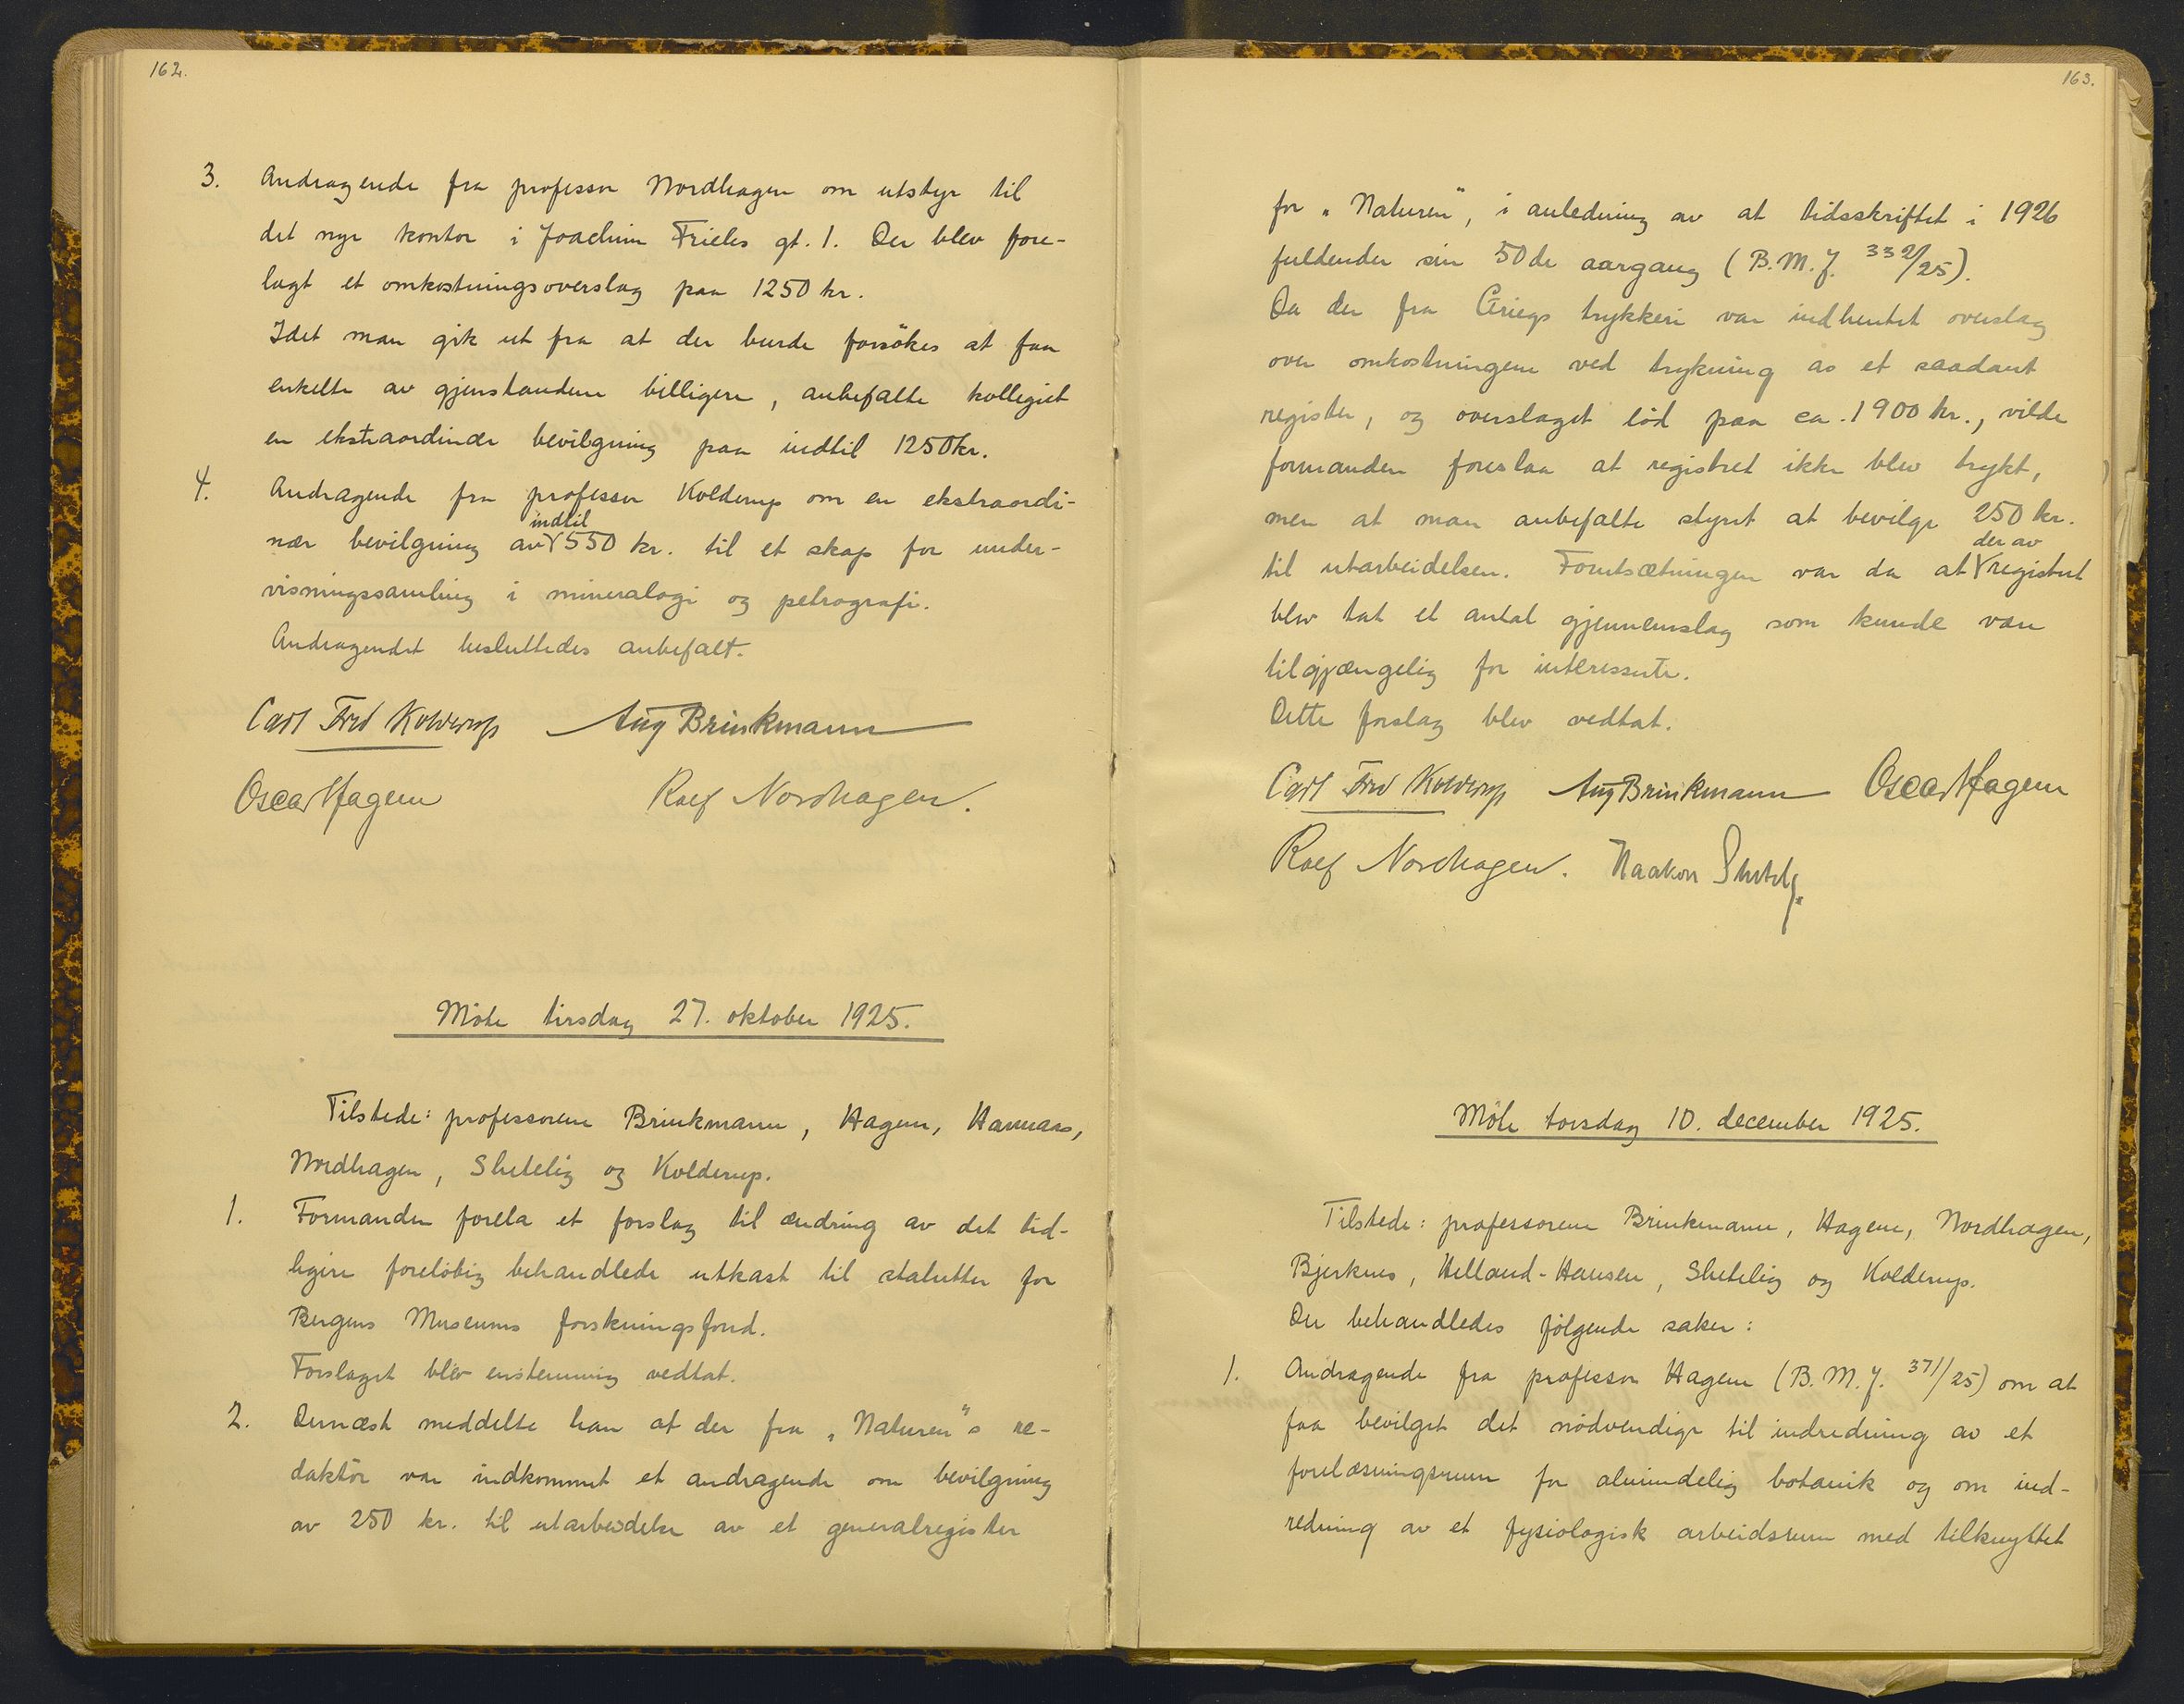 162.
3. Andragende fra professor Nordhagen om utstyr til
det nye kontor i Joachim Frieles gt. 1. Der blev fore-
lagt et omkostningsoverslag paa 1250 kr.
Idet man gik ut fra at der burde forsökes at faa
enkelte av gjenstandene billigere, anbefalte kollegiet
en ekstraordinær bevilgning paa indtil 1250 kr.
4. Andragende fra professor Kolderup om en ekstraordi-
nær bevilgning av indtil 550 kr. til et skap for under-
visningssamling i mineralogi og petrografi.
Andragendet besluttedes anbefalt.
Carl Fred Kolderup Aug Brinkmann
Oscar Hagem Rolf Nordhagen.
Möte tirsdag 27. oktober 1925.
Tilstede: professorene Brinkmann, Hagem, Hannaas,
Nordhagen, Shetelig og Kolderup.
1. Formanden forela et forslag til ændring av det tid-
ligere forelöbig behandlede utkast til statutter for
Bergens Museums forskningsfond.
Forslaget blev enstemmig vedtat.
2. Dernæst meddelte han at der fra „Naturen"s re-
daktör var indkommet et andragende om bevilgning
av 250 kr. til utarbeidelse av et generalregister
163.
for „Naturen", i anledning av at tidsskriftet i 1926
fuldender sin 50de aargang (B.M.J. 332/25).
Da der fra Griegs trykkeri var indhentet overslag
over omkostningene ved trykning av et saadant
register, og overslaget löd paa ca. 1900 kr., vilde
formanden foreslaa at registret ikke blev trykt,
men at man anbefalte styret at bevilge 250 kr.
til utarbeidelsen. Forutsætningen var da at der av registret
blev tat et antal gjennemslag som kunde være
tilgjængelig for interesserte.
Dette forslag blev vedtat.
Carl Fred Kolderup Aug Brinkmann Oscar Hagem
Rolf Nordhagen. Haakon Shetelig.
Möte torsdag 10. december 1925.
Tilstede: professorene Brinkmann, Hagem, Nordhagen,
Bjerknes, Helland-Hansen, Shetelig og Kolderup.
Der behandledes fölgende saker:
1. Andragende fra professor Hagem (B.M.J. 371/25) om at
faa bevilget det nödvendige til indredning av et
forelæsningsrum for almindelig botanik og om ind-
redning av et fysiologisk arbeidsrum med tilknyttet